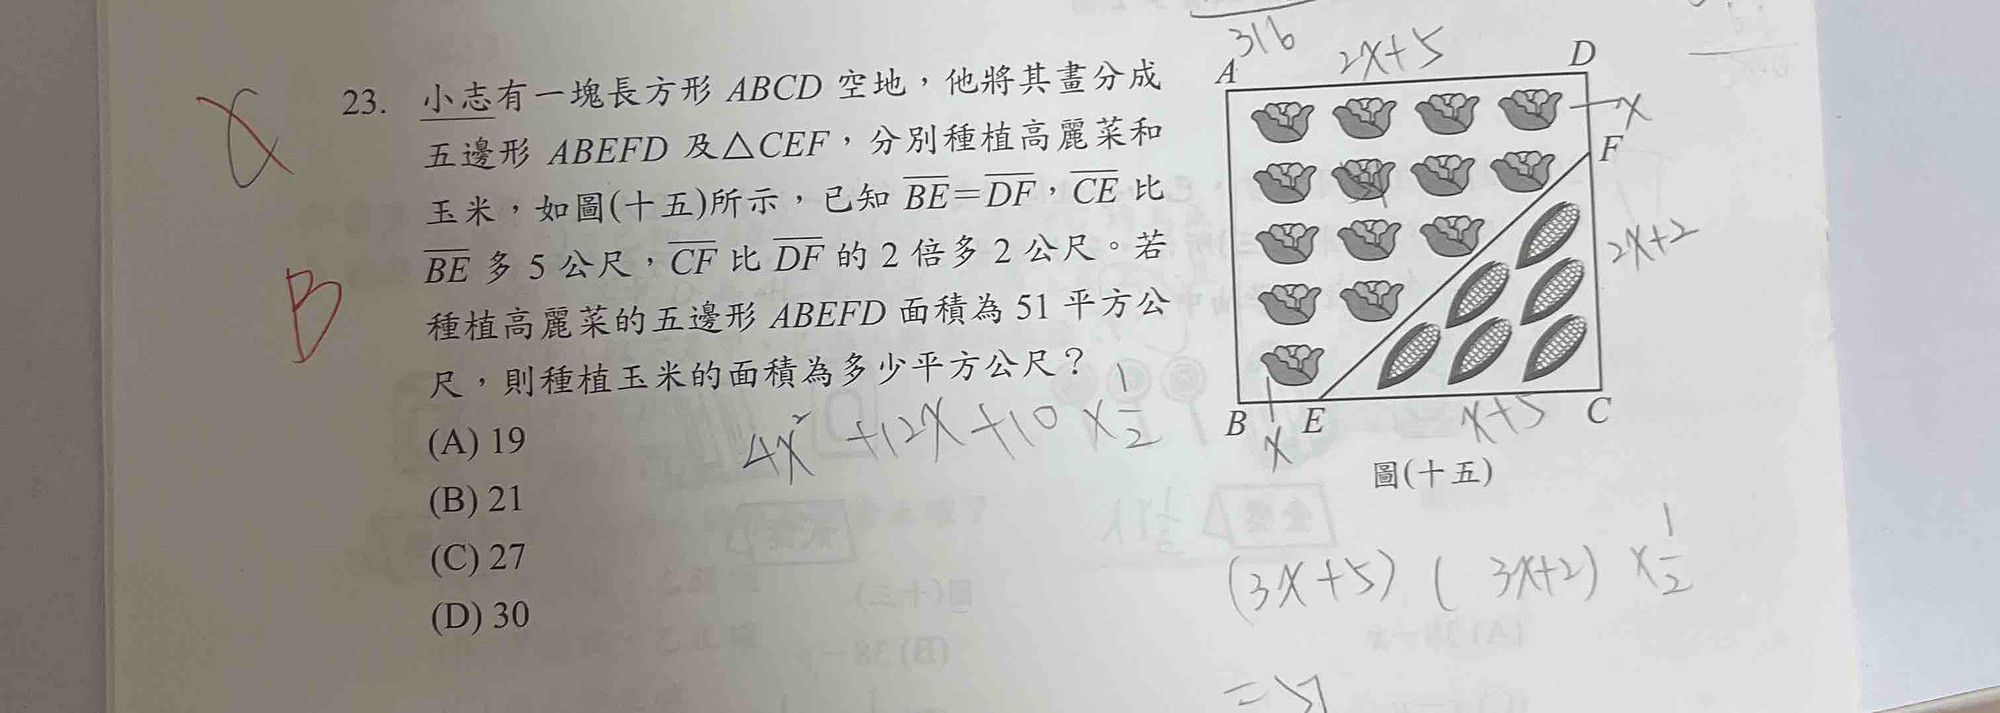 316
2x+5
A
D
x
F
2x+2
B
E
C
x
x+5
圖(十五)
23. 小志有一塊長方形 ABCD 空地，他將其畫分成
五邊形 ABEFD 及△CEF，分別種植高麗菜和
玉米，如圖(十五)所示，已知 BE=DF，CE 比
BE 多 5 公尺，CF 比 DF 的 2 倍多 2 公尺。若
種植高麗菜的五邊形 ABEFD 面積為 51 平方公
尺，則種植玉米的面積為多少平方公尺？
B
4x²+12x+10×1/2
(A) 19
(B) 21
(C) 27
(D) 30
(3x+5)(3x+2)×1/2